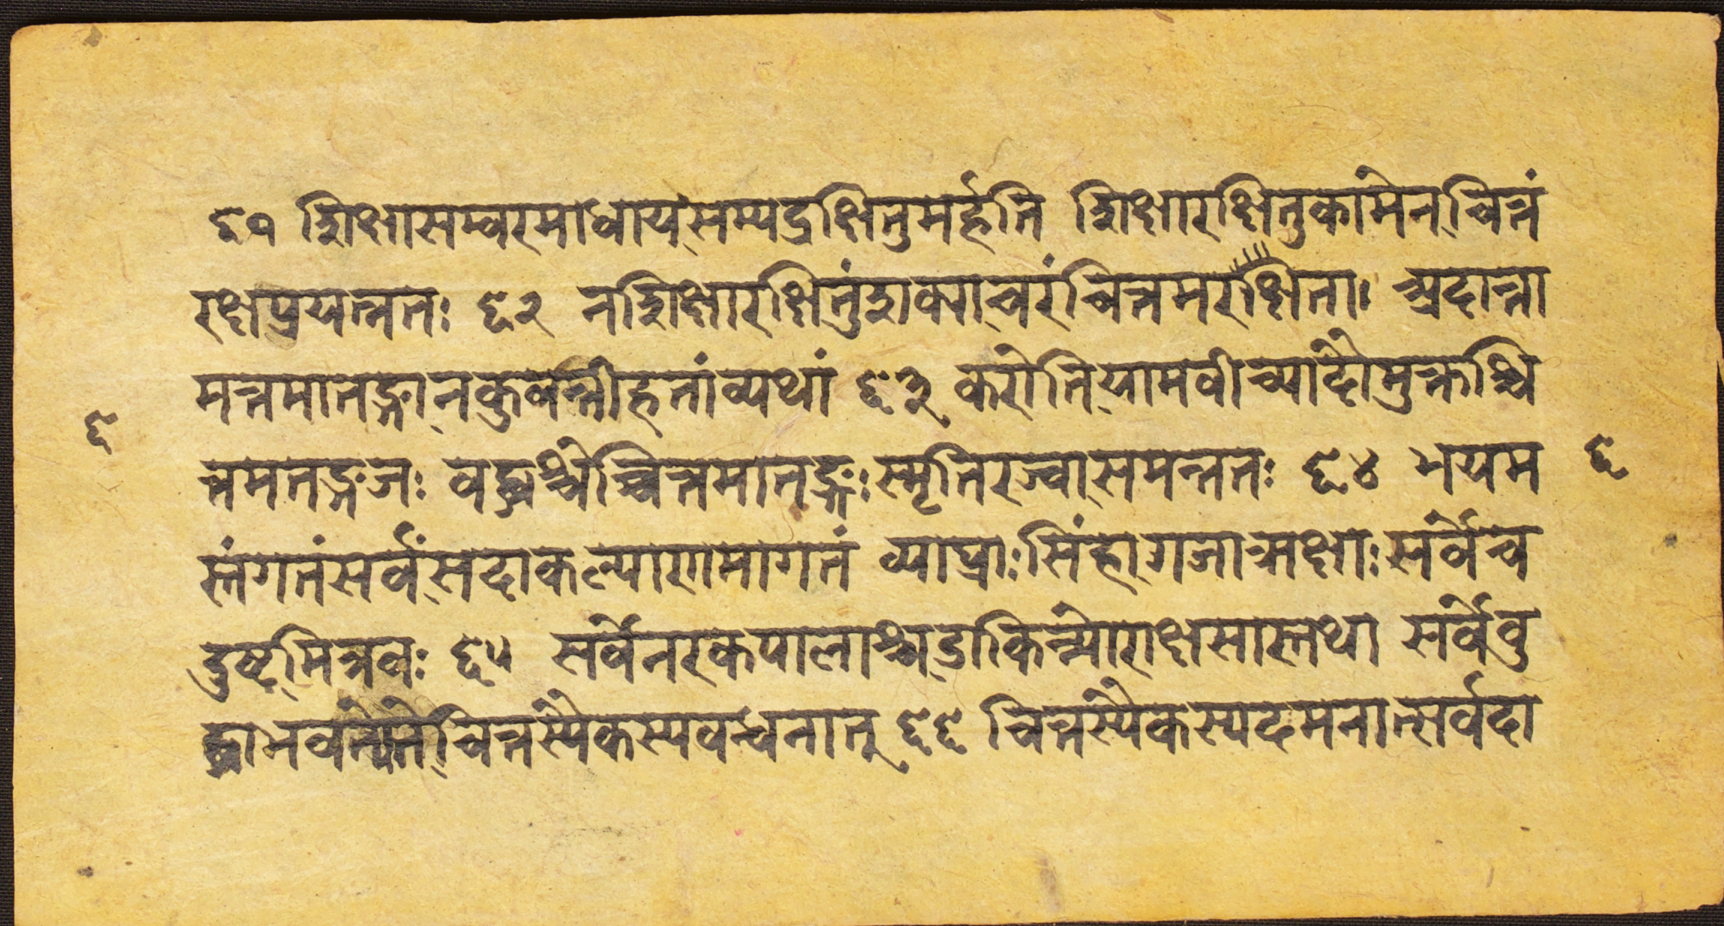 ६१ शिक्षासम्वरमाधाय सम्यद्रक्षितुमर्हति शिक्षारक्षितुकामेन चित्तं
रक्षप्रयत्नतः ६२ नशिक्षारक्षितुंशक्याचरंचित्तमरक्षिता। अदान्ता
मत्तमातङ्गानकुर्वन्तीहतांव्यथां ६३ करोतियामवीच्यादौमुक्तश्चि
त्तमतङ्गजः वद्धश्चेच्चित्तमातङ्गः स्मृतिरज्वासमन्ततः ६४ भयम
स्तंगतंसर्वंसदाकल्याणमागतं व्याघ्राः सिंहागजाऋक्षाः सर्वेच
दुष्टमित्रवः ६५ सर्वेनरकपालाश्चडाकिन्योराक्षसास्तथा सर्वेवु
द्धाभवन्त्येतेचित्तस्यैकस्यवन्धनात् ६६ चित्तस्यैकस्यदमनात्सर्वदा
६
६